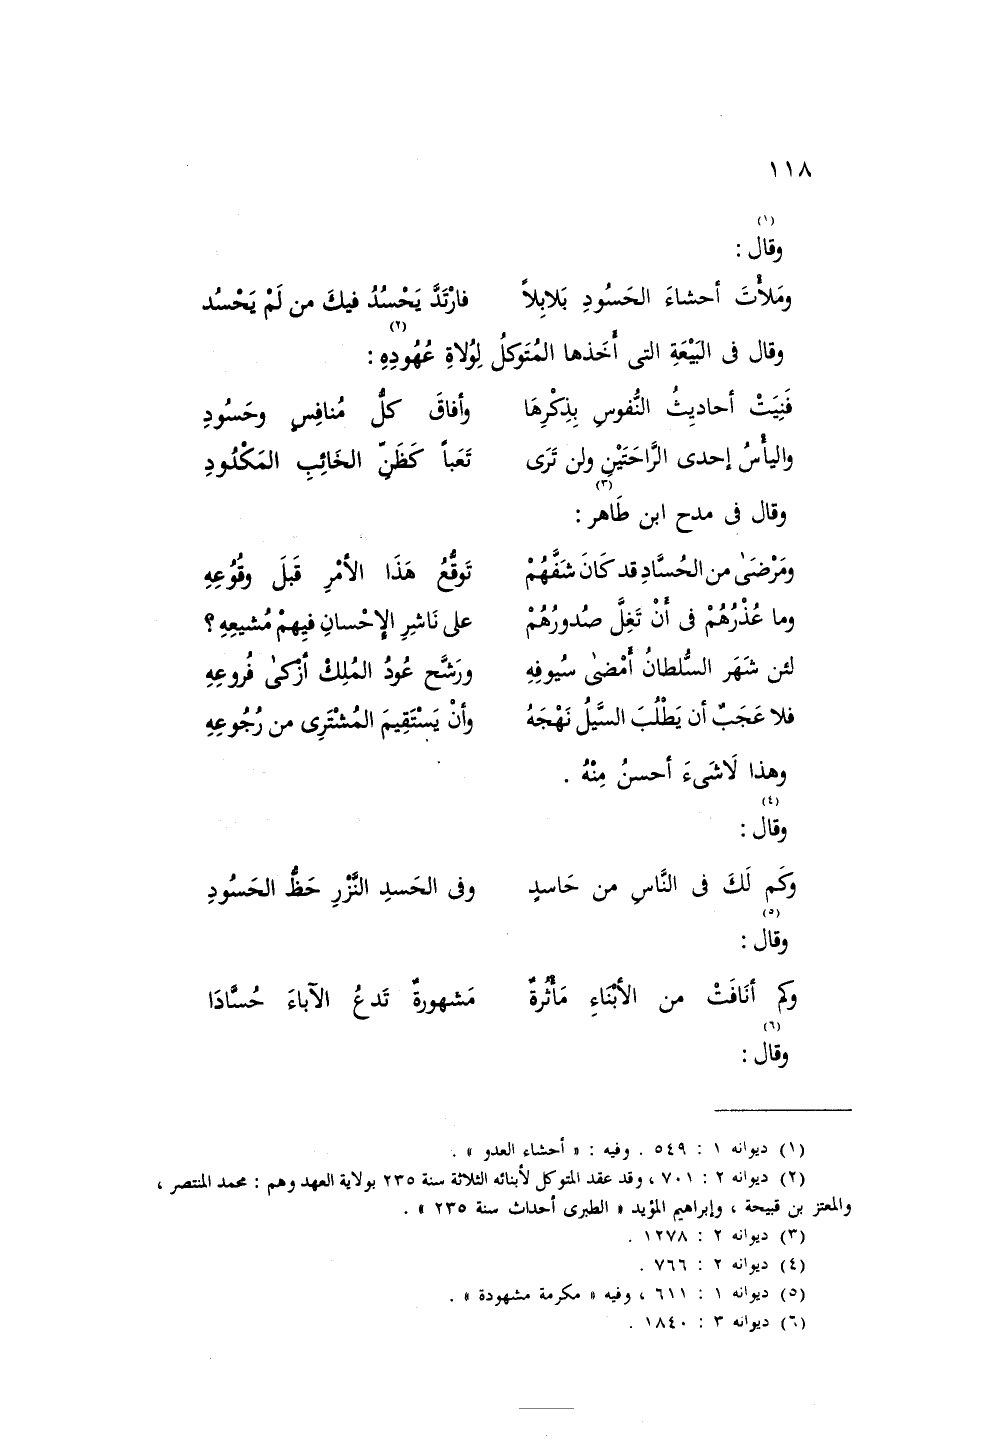 ١١٨
(١)
وقال :
ومَلأْتَ أحشاءَ الحَسُودِ بَلابِلاً فارْتَدَّ يَحْسُدُ فيكَ من لَمْ يَحْسُد
(٢)
وقال فى البَيْعَةِ التى أَخَذها المُتَوكلُ لِوُلاةِ عُهُودِهِ :
فَنِيَتْ أحاديِثُ النُّفوسِ بِذِكْرِهَا وأفاقَ كلُّ مُنافِسٍ وحَسُودِ
واليأْسُ إحدى الرَّاحَتَيْنِ ولن تَرَى تَعَباً كَظَنِّ الخَائِبِ المَكْدُودِ
(٣)
وقال فى مدح ابن طَاهر :
ومَرْضَىٰ من الحُسَّادِ قد كَانَ شَفَّهُمْ تَوقُّعُ هَذَا الأمْرِ قَبلَ وقُوُعِهِ
وما عُذْرُهُمْ فى أَنْ تَغِلَّ صُدورُهُمْ على نَاشِرِ الإحْسانِ فِيهِمْ مُشيعِهِ ؟
لئن شَهَر السُّلطانُ أَمْضىٰ سيُوفِهِ ورَشَّح عُودُ المُلِكْ أزْكىٰ فُروعِهِ
فلا عَجَبٌ أن يَطْلُبَ السَّيلُ نَهْجَهُ وأنْ يَسْتَقِيمَ المُشْتَرِى من رُجُوعِهِ
وهذا لَاشَىءَ أحسنُ مِنْهُ .
(٤)
وقال :
وكَم لَكَ فى النَّاسِ من حَاسدٍ وفى الحَسدِ النَّزْرِ حَظُّ الحَسُودِ
(٥)
وقال :
وكم أنَافَتْ من الأبْنَاءِ مَأْثُرةٌ مَشهورةٌ تَدعُ الآباءَ حُسَّادَا
(٦)
وقال :
(١) ديوانه ١ : ٥٤٩ . وفيه : « أحشاء العدو » .
(٢) ديوانه ٢ : ٧٠١ ، وقد عقد المتوكل لأبنائه الثلاثة سنة ٢٣٥ بولاية العهد وهم : محمد المنتصر ،
والمعتز بن قبيحة ، وإبراهيم المؤيد « الطبرى أحداث سنة ٢٣٥ » .
(٣) ديوانه ٢ : ١٢٧٨ .
(٤) ديوانه ٢ : ٧٦٦ .
(٥) ديوانه ١ : ٦١١ ، وفيه « مكرمة مشهودة » .
(٦) ديوانه ٣ : ١٨٤٠ .